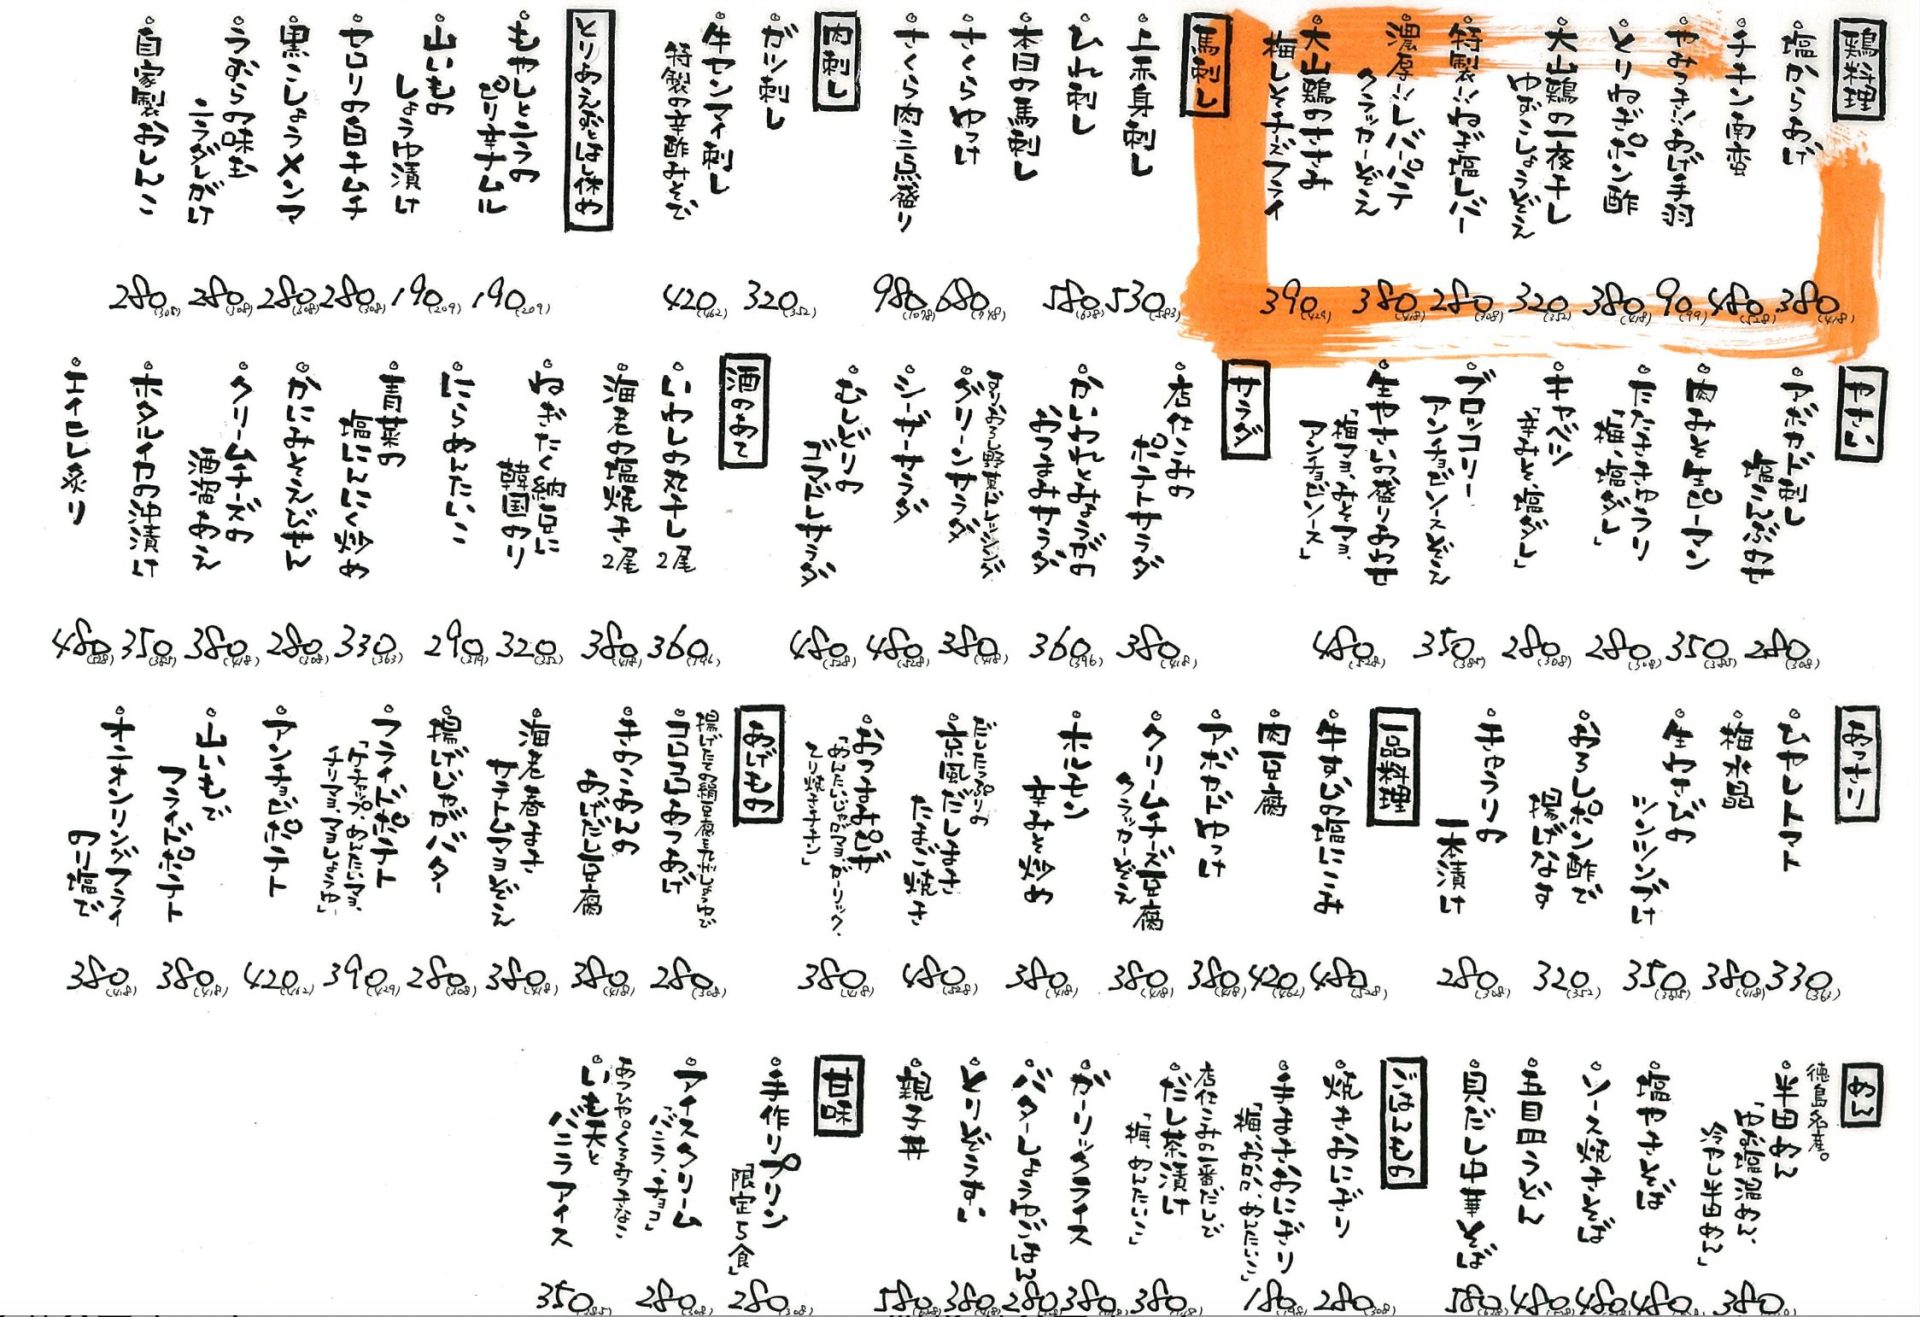 鶏料理
塩からあげ
380(418)
チキン南蛮
480(528)
やみつき!!あげ手羽
90(99)
とりねぎポン酢
380(418)
大山鶏の一夜干し
ゆずこしょうぞえ
320(352)
特製!!ねぎ塩レバー
280(308)
濃厚!!レバーパテ
クラッカーぞえ
380(418)
大山鶏のささみ
梅しそチーズフライ
390(429)
馬刺し
上赤身刺し
530(583)
ひれ刺し
580(638)
本日の馬刺し
さくらゆっけ
680(748)
さくら肉三点盛り
980(1078)
肉刺し
ガツ刺し
320(352)
牛センマイ刺し
特製の辛酢みそで
420(462)
とりあえずとはし休め
もやしとニラの
ピリ辛ナムル
190(209)
山いもの
しょうゆ漬け
190(209)
セロリの白キムチ
280(308)
黒こしょうメンマ
280(308)
うずらの味玉
ニラダレがけ
280(308)
自家製おしんこ
280(308)
やさい
アボカド刺し
塩こんぶのせ
280(308)
肉みそ生ピーマン
350(385)
たたききゅうり
「梅、塩ダレ」
280(308)
キャベツ
「辛みそ、塩ダレ」
280(308)
ブロッコリー
アンチョビソースぞえ
350(385)
生やさいの盛りあわせ
「梅マヨ、みそマヨ、
アンチョビソース」
480(528)
サラダ
店仕こみの
ポテトサラダ
380(418)
かいわれとみょうがの
おつまみサラダ
360(396)
すりおろし野菜ドレッシング
グリーンサラダ
380(418)
シーザーサラダ
480(528)
むしどりの
ゴマドレサラダ
480(528)
酒のあて
いわしの丸干し 2尾
360(396)
海老の塩焼き 2尾
380(418)
ねぎたく納豆に
韓国のり
320(352)
にらめんたいこ
290(319)
青菜の
塩にんにく炒め
330(363)
かにみそえびせん
280(308)
クリームチーズの
酒盗あえ
380(418)
ホタルイカの沖漬け
350(385)
エイヒレ炙り
480(528)
あっさり
ひやしトマト
330(363)
梅水晶
380(418)
生わさびの
ツンツンづけ
350(385)
おろしポン酢で
揚げなす
320(352)
きゅうりの
一本漬け
280(308)
一品料理
牛すじの塩にこみ
480(528)
肉豆腐
420(462)
アボカドゆっけ
380(418)
クリームチーズ豆腐
クラッカーぞえ
380(418)
ホルモン
辛みそ炒め
380(418)
だしたっぷりの
京風だしまき
たまご焼き
480(528)
おつまみピザ
「めんたいじゃがマヨ、ガーリック、
てり焼きチキン」
380(418)
あげもの
揚げたての絹豆腐を九州しょうゆで
コロコロあつあげ
280(308)
きのこあんの
あげだし豆腐
380(418)
海老春まき
サテトムマヨぞえ
380(418)
揚げじゃがバター
280(308)
フライドポテト
「ケチャップ、めんたいマヨ、
チリマヨ、マヨしょうゆ」
390(429)
アンチョビポテト
420(462)
山いもで
フライドポテト
380(418)
オニオンリングフライ
のり塩で
380(418)
めん
徳島名産。
半田めん
「ゆず塩温めん、
冷やし半田めん」
380
塩やきそば
480
ソース焼きそば
480
五目皿うどん
480
貝だし中華そば
580
ごはんもの
焼きおにぎり
280(308)
手まきおにぎり
「梅、おかか、めんたいこ」
180(198)
店仕こみの一番だしで
だし茶漬け
「梅、めんたいこ」
380
ガーリックライス
380
バターしょうゆごはん
280
とりぞうすい
380
親子丼
580
甘味
手作りプリン
「限定5食」
280(308)
アイスクリーム
「バニラ、チョコ」
280(308)
あつひや。くろみつきなこ
いも天と
バニラアイス
350(385)